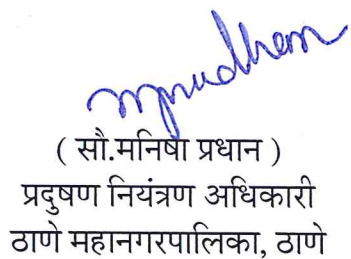 ( सौ.मनिषा प्रधान )
प्रदुषण नियंत्रण अधिकारी
ठाणे महानगरपालिका, ठाणे